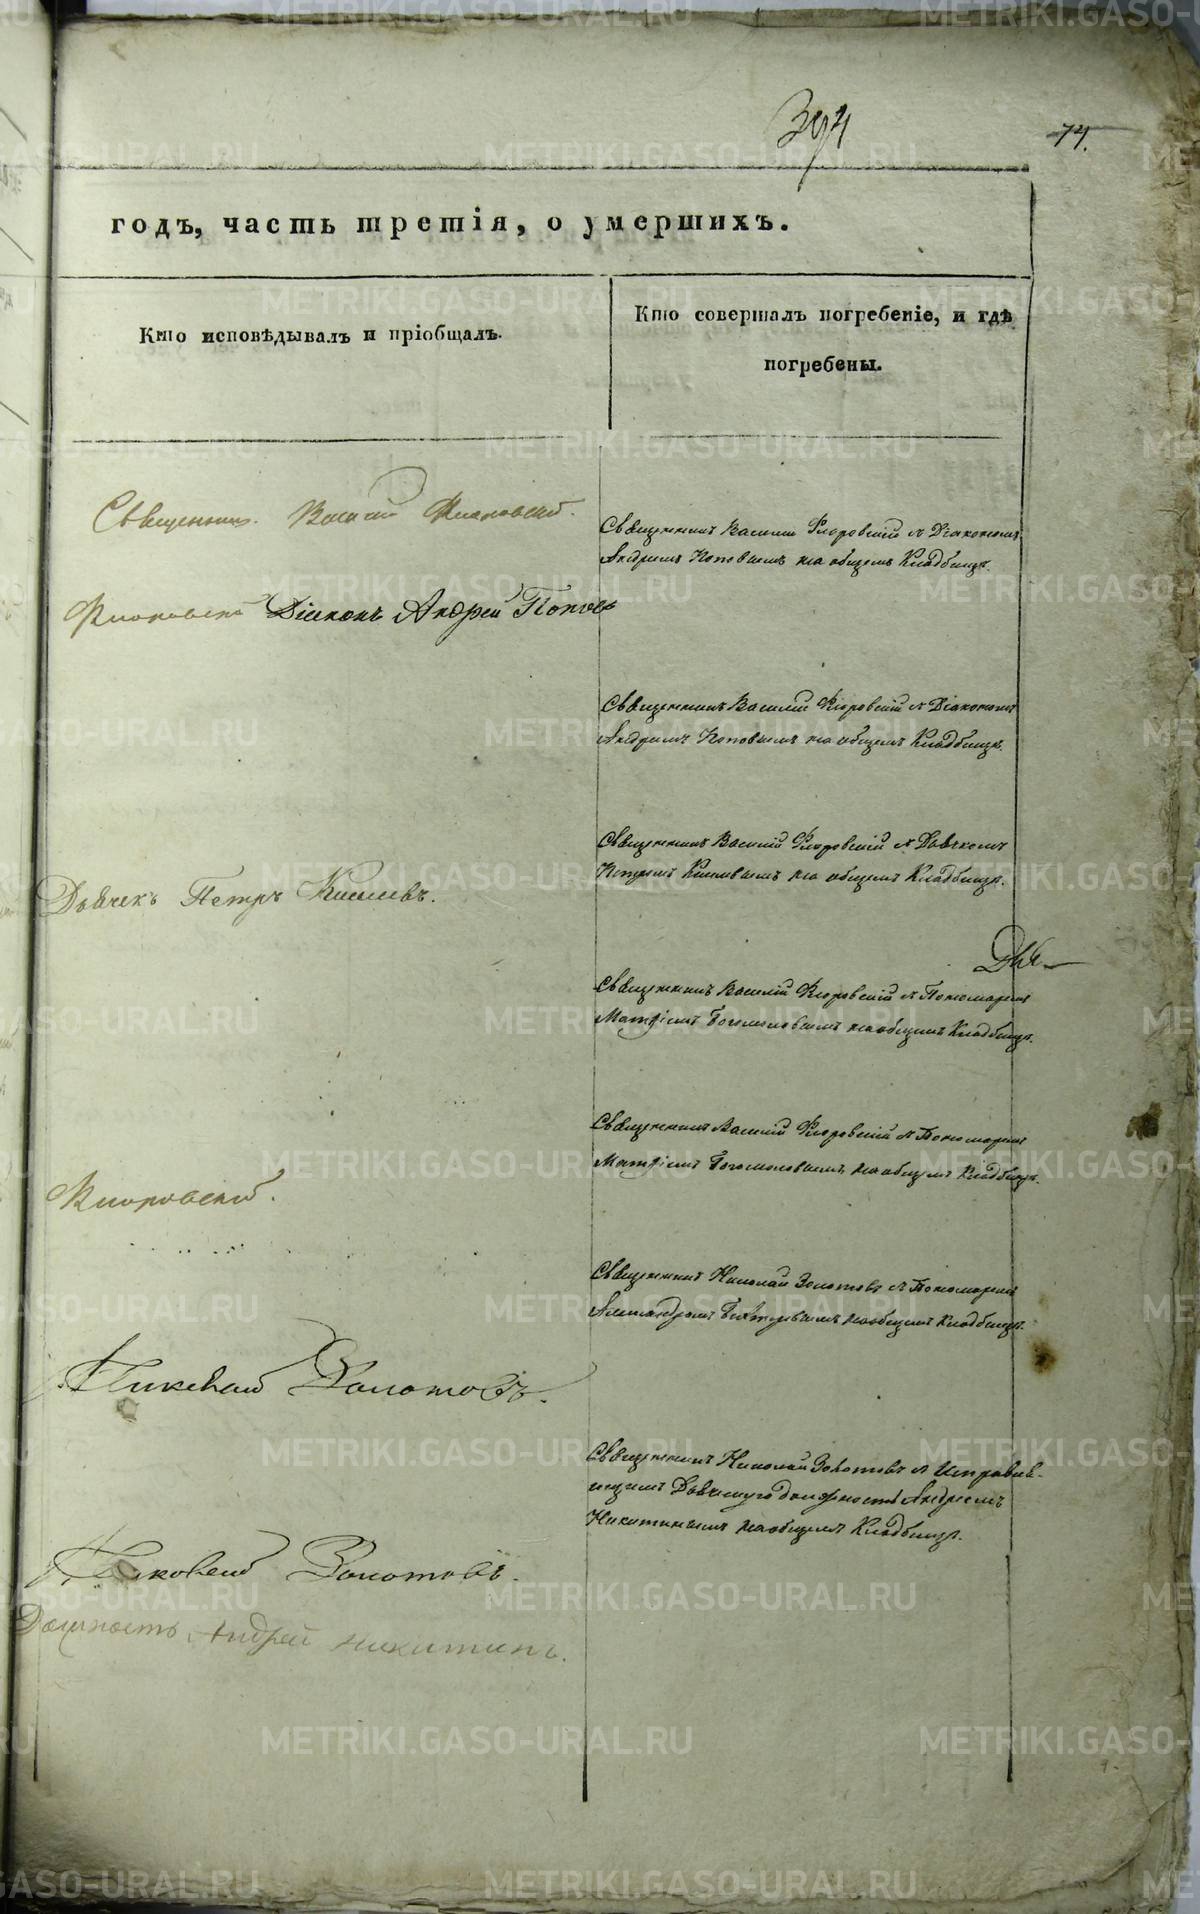 394
74.
годъ, часть третія, о умершихъ.
Кто исповѣдывалъ и пріобщалъ.
Кто совершалъ погребеніе, и гдѣ
погребены.
Священник. Василій Флоровскій.
Священникъ Василій Флоровскій съ Діакономъ
Андреемъ Поповымъ на общемъ Кладбищѣ.
Флоровскій Діаконъ Андрей Поповъ
Священникъ Василій Флоровскій съ Діакономъ
Андреемъ Поповымъ на общемъ Кладбищѣ.
Священникъ Василій Флоровскій съ Дьячкомъ
Петромъ Киселевымъ на общемъ Кладбищѣ.
Дьячекъ Петръ Киселевъ.
Священникъ Василій Флоровскій съ Пономаремъ
Матфіемъ Богомоловымъ на общемъ Кладбищѣ.
Священникъ Василій Флоровскій съ Пономаремъ
Матфіемъ Богомоловымъ на общемъ Кладбищѣ.
Флоровскій.
Священникъ Николай Золотовъ съ Пономаремъ
Александромъ на общемъ Кладбищѣ.
Николай Золотовъ.
Священникъ Николай Золотовъ съ Исправля-
ющимъ Дьячкову должность Андреемъ
Никитинымъ на общемъ Кладбищѣ.
Николай Золотовъ.
Должность Андрей Никитинъ.
METRIKI.GASO-URAL.RU